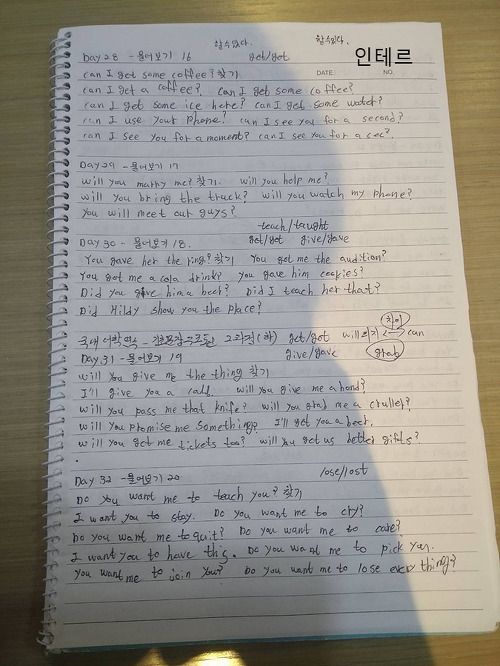 할수없다. 할수있다.
Day 28 - 물어보기 16 get/got 인테르
DATE NO.
can I get some coffee? 찾기
can I get a coffee? can I get some coffee?
can I get some ice here? can I get some water?
can I use your phone? can I see you for a second?
can I see you for a moment? can I see you for a sec?
Day 29 - 물어보기 17
will you marry me? 찾기. will you help me?
will you bring the truck? will you watch my phone?
You will meet our guys?
teach/taught
Day 30 - 물어보기 18. get/got give/gave
You gave her the ring? 찾기 You got me the audition?
You got me a cola drink? You gave him cookies?
Did you give him a beer? Did I teach her that?
Did Hildy show you the place?
차이
국내 어학연수 - 2과정 (하) get/got will 의지 can
Day 31 - 물어보기 19 give/gave grab
will you give me the thing 찾기
I'll give you a call. will you give me a hand?
will you pass me that knife? will you grab me a cruller?
will you promise me something? I'll get you a beer.
will you get me tickets too? will you get us better gifts?
Day 32 - 물어보기 20 lose/lost
Do you want me to teach you? 찾기
I want you to stay. Do you want me to cry?
Do you want me to quit? Do you want me to care?
I want you to have this. Do you want me to pick you.
You want me to join you? Do you want me to lose everything?